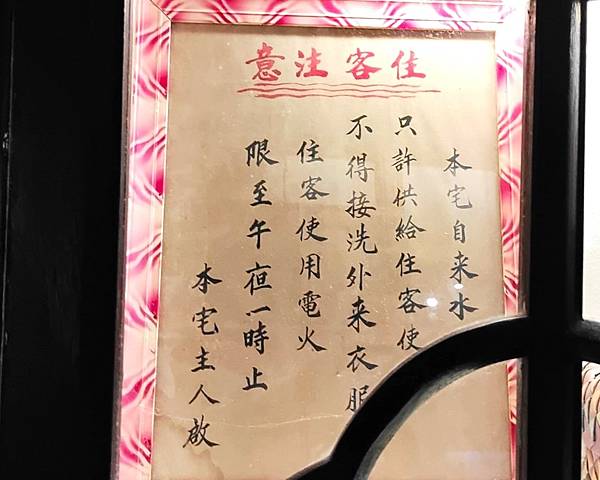 住客注意
本宅自来水
只許供給住客使
不得接洗外来衣服
住客使用電火
限至午亱一時止
本宅主人啟